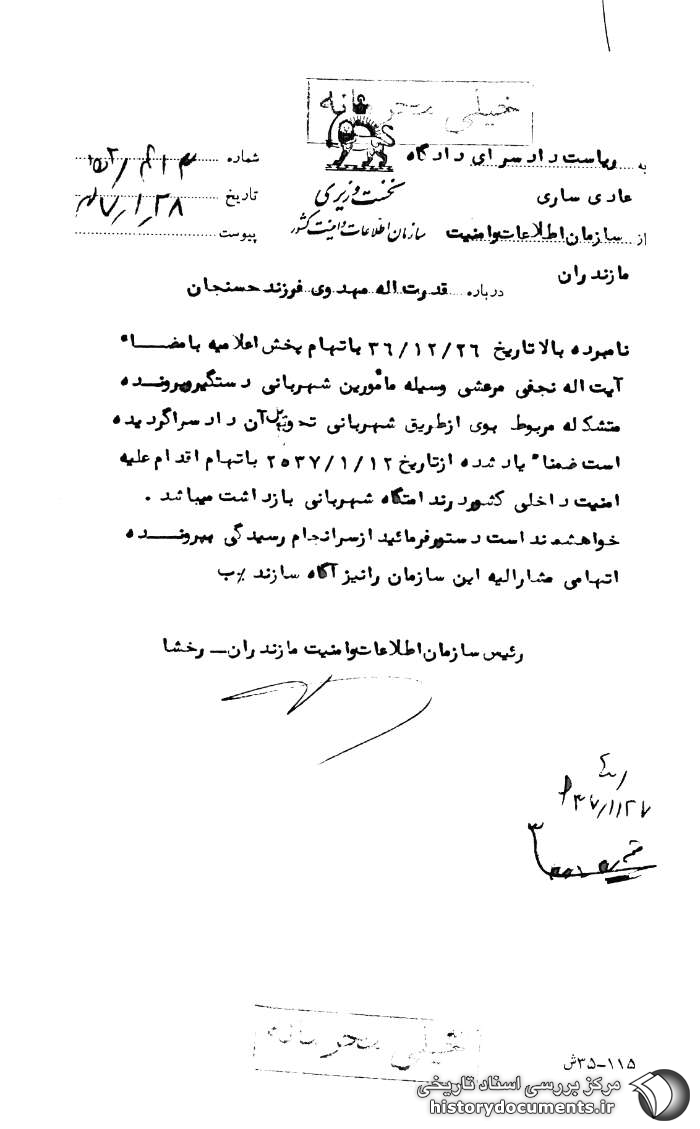 خیلی محرمانه
به ریاست دادسرای دادگاه
عادی ساری
از سازمان اطلاعات وامنیت
مازندران
نخست وزیری
سازمان اطلاعات و امنیت کشور
شماره
تاریخ
پیوست
درباره قدرت اله مهدوی فرزند حسنجان
نامبرده بالا تاریخ ۳۶/۱۲/۲۶ باتهام پخش اعلامیه بامضاء
آیت اله نجفی مرعشی وسیله مأمورین شهربانی دستگیر وپرونده
متشکله مربوط بوی ازطریق شهربانی تحویل آن دادسرا گردیده
است ضمناً یاد شده ازتاریخ ۲۵۳۷/۱/۱۲ باتهام اقدام علیه
امنیت داخلی کشور در ندامتگاه شهربانی بازداشت میباشد .
خواهشمند است دستور فرمائید ازسرانجام رسیدگی بپرونده
اتهامی مشارالیه این سازمان رانیز آگاه سازند
رئیس سازمان اطلاعات وامنیت مازندران _ رخشا
خیلی محرمانه
۱۱۵-۳۵ش
مرکز بررسی اسناد تاریخی
historydocuments.ir